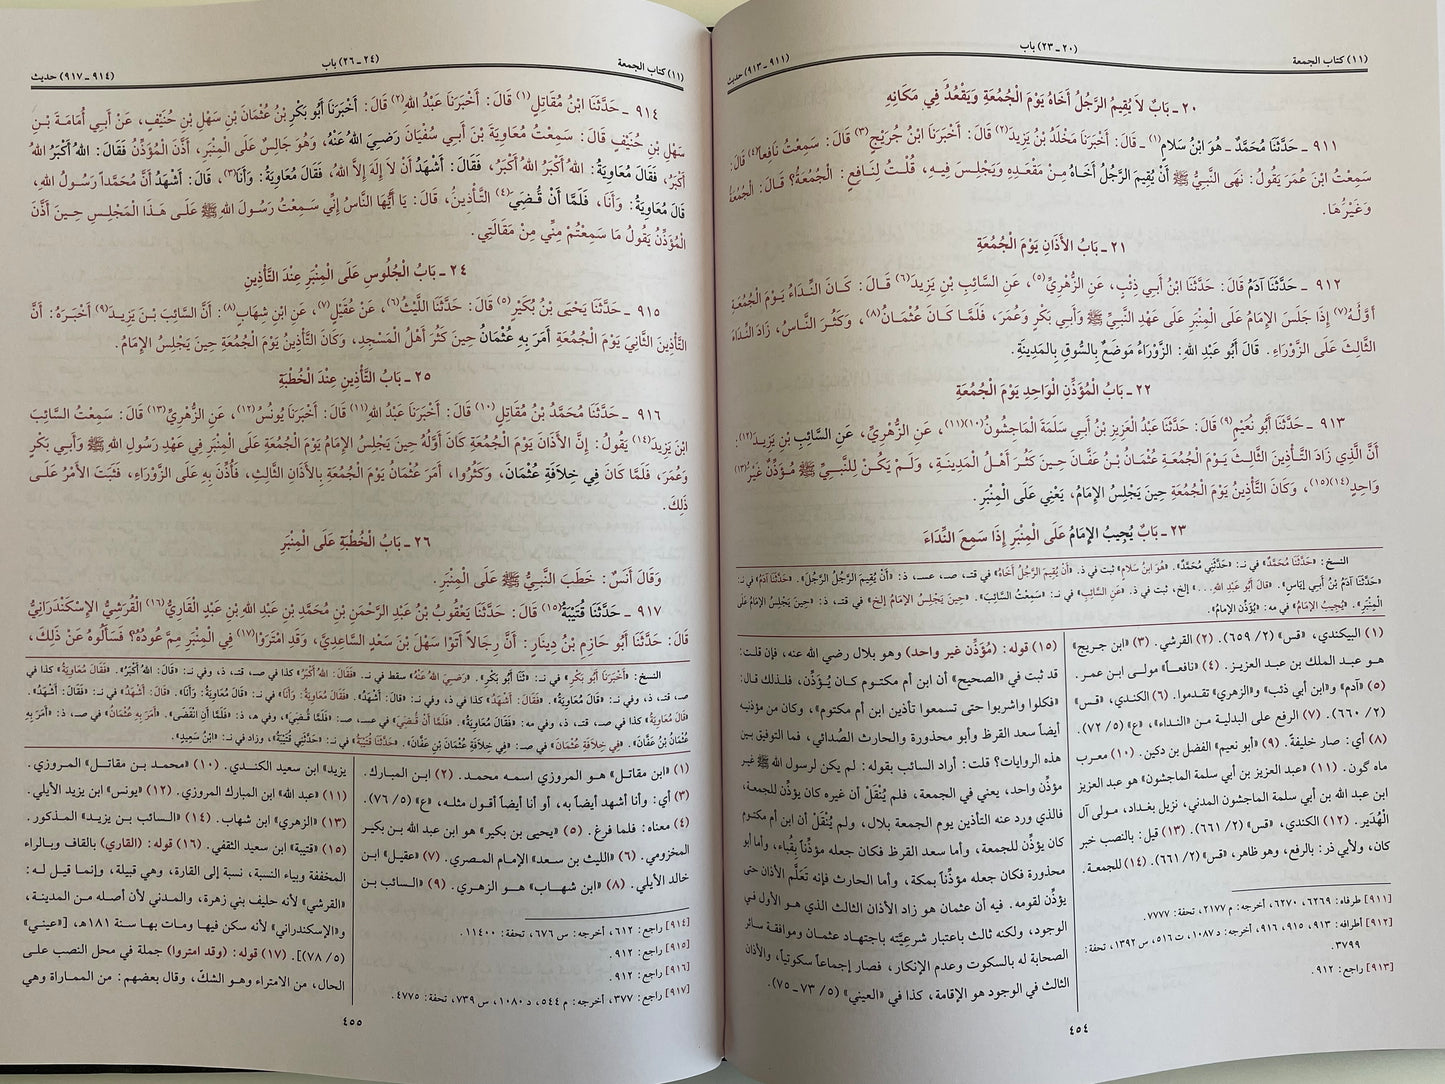 (١١) كتاب الجمعة
(٢٠ ـ ٢٣) باب
(٩١١ ـ ٩١٣) حديث
٢٠ ـ بَابٌ لاَ يُقِيمُ الرَّجُلُ أَخَاهُ يَوْمَ الْجُمُعَةِ وَيَقْعُدُ فِي مَكَانِهِ
٩١١ ـ حَدَّثَنَا مُحَمَّدٌ ـ هُوَ ابْنُ سَلَامٍ(١) ـ قَالَ: أَخْبَرَنَا مَخْلَدُ بْنُ يَزِيدَ(٢) قَالَ: أَخْبَرَنَا ابْنُ جُرَيْجٍ(٣) قَالَ: سَمِعْتُ نَافِعاً(٤) قَالَ:
سَمِعْتُ ابْنَ عُمَرَ يَقُولُ: نَهَى النَّبِيُّ ﷺ أَنْ يُقِيمَ الرَّجُلُ أَخَاهُ مِنْ مَقْعَدِهِ وَيَجْلِسَ فِيهِ، قُلْتُ لِنَافِعٍ: الْجُمُعَةَ؟ قَالَ: الْجُمُعَةَ
وَغَيْرَهَا.
٢١ ـ بَابُ الأَذَانِ يَوْمَ الْجُمُعَةِ
٩١٢ ـ حَدَّثَنَا آدَمُ قَالَ: حَدَّثَنَا ابْنُ أَبِي ذِئْبٍ، عَنِ الزُّهْرِيِّ(٥)، عَنِ السَّائِبِ بْنِ يَزِيدَ(٦) قَالَ: كَانَ النِّدَاءُ يَوْمَ الْجُمُعَةِ
أَوَّلُهُ(٧) إِذَا جَلَسَ الإِمَامُ عَلَى الْمِنْبَرِ عَلَى عَهْدِ النَّبِيِّ ﷺ وَأَبِي بَكْرٍ وَعُمَرَ، فَلَمَّا كَانَ عُثْمَانُ(٨)، وَكَثُرَ النَّاسُ، زَادَ النِّدَاءَ
الثَّالِثَ عَلَى الزَّوْرَاءِ. قَالَ أَبُو عَبْدِ اللهِ: الزَّوْرَاءُ مَوضَعٌ بِالسُّوقِ بِالمَدِينَةِ.
٢٢ ـ بَابُ الْمُؤَذِّنِ الْوَاحِدِ يَوْمَ الْجُمُعَةِ
٩١٣ ـ حَدَّثَنَا أَبُو نُعَيْمٍ(٩) قَالَ: حَدَّثَنَا عَبْدُ الْعَزِيزِ بْنُ أَبِي سَلَمَةَ الْمَاجِشُونُ(١٠)(١١)، عَنِ الزُّهْرِيِّ، عَنِ السَّائِبِ بْنِ يَزِيدَ(١٢):
أَنَّ الَّذِي زَادَ التَّأْذِينَ الثَّالِثَ يَوْمَ الْجُمُعَةِ عُثْمَانُ بْنُ عَفَّانَ حِينَ كَثُرَ أَهْلُ الْمَدِينَةِ، وَلَمْ يَكُنْ لِلنَّبِيِّ ﷺ مُؤَذِّنٌ غَيْرُ(١٣)
وَاحِدٍ(١٤)(١٥)، وَكَانَ التَّأْذِينُ يَوْمَ الْجُمُعَةِ حِينَ يَجْلِسُ الإِمَامُ، يَعْنِي عَلَى الْمِنْبَرِ.
٢٣ ـ بَابٌ يُجِيبُ الإِمَامُ عَلَى الْمِنْبَرِ إِذَا سَمِعَ النِّدَاءَ
النسخ: «حَدَّثَنَا مُحَمَّدٌ» في نـ: «حَدَّثَنِي مُحَمَّدٌ». «هُوَ ابنُ سَلَامٍ» ثبت في ذ. «أَن يُقِيمَ الرَّجُلُ أَخَاهُ» في قتـ، صـ، عسـ، ذ: «أَنْ يُقِيمَ الرَّجُلُ الرَّجُلَ». «حَدَّثَنَا آدَمُ» في نـ:
«حَدَّثَنَا آدَمُ بْنُ أَبِي إِيَاسٍ». «قَالَ أَبُو عَبدِ اللهِ...» إلخ، ثبت في ذ. «عَنِ السَّائِبِ» في نـ: «سَمِعْتُ السَّائِبَ». «حِينَ يَجْلِسُ الإِمَامُ إلخ» في قتـ، ذ: «حِينَ يَجْلِسُ الإِمَامُ عَلَى
الْمِنْبَرِ». «يُجِيبُ الإِمَامُ» في مه: «يُؤَذِّن الإِمَامُ».
(١) البيكندي، «قس» (٢/ ٦٥٩). (٢) القرشي. (٣) «ابن جريج»
هو عبد الملك بن عبد العزيز. (٤) «نافعاً» مولى ابن عمر.
(٥) «آدم» و«ابن أبي ذئب» و«الزهري» تقدموا. (٦) الكندي، «قس»
(٢/ ٦٦٠). (٧) الرفع على البدلية من «النداء»، «ع» (٥/ ٧٢).
(٨) أي: صار خليفةً. (٩) «أبو نعيم» الفضل بن دكين. (١٠) معرب
ماه گون. (١١) «عبد العزيز بن أبي سلمة الماجشون» هو عبد العزيز
ابن عبد الله بن أبي سلمة الماجشون المدني، نزيل بغداد، مولى آل
الْهُدَير. (١٢) الكندي، «قس» (٢/ ٦٦١). (١٣) قيل: بالنصب خبر
كان، ولأبي ذر: بالرفع، وهو ظاهر، «قس» (٢/ ٦٦١). (١٤) للجمعة.
(١٥) قوله: (مُؤَذِّن غير واحد) وهو بلال رضي الله عنه، فإن قلت:
قد ثبت في «الصحيح» أن ابن أم مكتوم كان يُؤَذِّن، فلذلك قال:
«فكلوا واشربوا حتى تسمعوا تأذين ابن أم مكتوم»، وكان من مؤذنيه
أيضاً سعد القرظ وأبو محذورة والحارث الصُّدائي، فما التوفيق بين
هذه الروايات؟ قلت: أراد السائب بقوله: لم يكن لرسول الله ﷺ غير
مؤذِّن واحد، يعني في الجمعة، فلم يُنْقَلْ أن غيره كان يؤذِّن للجمعة،
فالذي ورد عنه التأذين يوم الجمعة بلال، ولم يُنْقَلْ أن ابن أم مكتوم
كان يؤذِّن للجمعة، وأما سعد القرظ فكان جعله مؤذِّناً بِقُباء، وأما أبو
محذورة فكان جعله مؤذِّناً بمكة، وأما الحارث فإنه تَعَلَّمَ الأذان حتى
يؤذِّن لقومه. فيه أن عثمان هو زاد الأذان الثالث الذي هو الأول في
الوجود، ولكنه ثالث باعتبار شرعِيَّته باجتهاد عثمان وموافقة سائر
الصحابة له بالسكوت وعدم الإنكار، فصار إجماعاً سكوتياً، والأذان
الثالث في الوجود هو الإقامة، كذا في «العيني» (٥/ ٧٣ ـ ٧٥).
[٩١١] طرفاه: ٦٢٦٩، ٦٢٧٠، أخرجه: م ٢١٧٧، تحفة: ٧٧٧٧.
[٩١٢] أطرافه: ٩١٣، ٩١٥، ٩١٦، أخرجه: د ١٠٨٧، ت ٥١٦، س ١٣٩٢، تحفة:
٣٧٩٩.
[٩١٣] راجع: ٩١٢.
٤٥٤
(١١) كتاب الجمعة
(٢٤ ـ ٢٦) باب
(٩١٤ ـ ٩١٧) حديث
٩١٤ ـ حَدَّثَنَا ابْنُ مُقَاتِلٍ(١) قَالَ: أَخْبَرَنَا عَبْدُ اللهِ(٢) قَالَ: أَخْبَرَنَا أَبُو بَكْرِ بْنُ عُثْمَانَ بْنِ سَهْلِ بْنِ حُنَيْفٍ، عَنْ أَبِي أُمَامَةَ بْنِ
سَهْلِ بْنِ حُنَيْفٍ قَالَ: سَمِعْتُ مُعَاوِيَةَ بْنَ أَبِي سُفْيَانَ رَضيَ اللهُ عَنْهُ، وَهُوَ جَالِسٌ عَلَى الْمِنْبَرِ، أَذَّنَ الْمُؤَذِّنُ فَقَالَ: اللهُ أَكْبَرُ اللهُ
أَكْبَرُ، فَقَالَ مُعَاوِيَةُ: اللهُ أَكْبَرُ اللهُ أَكْبَرُ، فَقَالَ: أَشْهَدُ أَنْ لاَ إِلَهَ إِلاَّ اللهُ، فَقَالَ مُعَاوِيَةُ: وَأَنَا(٣)، قَالَ: أَشْهَدُ أَنَّ مُحَمَّداً رَسُولُ اللهِ،
قَالَ مُعَاوِيَةُ: وَأَنَا، فَلَمَّا أَنْ قُضِيَ(٤) التَّأْذِينُ، قَالَ: يَا أَيُّهَا النَّاسُ إِنِّي سَمِعْتُ رَسُولَ اللهِ ﷺ عَلَى هَذَا الْمَجْلِسِ حِينَ أَذَّنَ
الْمُؤَذِّنُ يَقُولُ مَا سَمِعْتُمْ مِنِّي مِنْ مَقَالَتِي.
٢٤ ـ بَابُ الْجُلُوسِ عَلَى الْمِنْبَرِ عِنْدَ التَّأْذِينِ
٩١٥ ـ حَدَّثَنَا يَحْيَى بْنُ بُكَيْرٍ(٥) قَالَ: حَدَّثَنَا اللَّيْثُ(٦)، عَنْ عُقَيْلٍ(٧)، عَنِ ابْنِ شِهَابٍ(٨): أَنَّ السَّائِبَ بْنَ يَزِيدَ(٩) أَخْبَرَهُ: أَنَّ
التَّأْذِينَ الثَّانِيَ يَوْمَ الْجُمُعَةِ أَمَرَ بِهِ عُثْمَانُ حِينَ كَثُرَ أَهْلُ الْمَسْجِدِ، وَكَانَ التَّأْذِينُ يَوْمَ الْجُمُعَةِ حِينَ يَجْلِسُ الإِمَامُ.
٢٥ ـ بَابُ التَّأْذِينِ عِنْدَ الْخُطْبَةِ
٩١٦ ـ حَدَّثَنَا مُحَمَّدُ بْنُ مُقَاتِلٍ(١٠) قَالَ: أَخْبَرَنَا عَبْدُ اللهِ(١١) قَالَ: أَخْبَرَنَا يُونُسُ(١٢)، عَنِ الزُّهْرِيِّ(١٣) قَالَ: سَمِعْتُ السَّائِبَ
ابْنَ يَزِيدَ(١٤) يَقُولُ: إِنَّ الأَذَانَ يَوْمَ الْجُمُعَةِ كَانَ أَوَّلُهُ حِينَ يَجْلِسُ الإِمَامُ يَوْمَ الْجُمُعَةِ عَلَى الْمِنْبَرِ فِي عَهْدِ رَسُولِ اللهِ ﷺ وَأَبِي بَكْرٍ
وَعُمَرَ، فَلَمَّا كَانَ فِي خِلاَفَةِ عُثْمَانَ، وَكَثُرُوا، أَمَرَ عُثْمَانُ يَوْمَ الْجُمُعَةِ بِالأَذَانِ الثَّالِثِ، فَأُذِّنَ بِهِ عَلَى الزَّوْرَاءِ، فَثَبَتَ الأَمْرُ عَلَى
ذَلِكَ.
٢٦ ـ بَابُ الْخُطْبَةِ عَلَى الْمِنْبَرِ
وَقَالَ أَنَسٌ: خَطَبَ النَّبِيُّ ﷺ عَلَى الْمِنْبَرِ.
٩١٧ ـ حَدَّثَنَا قُتَيْبَةُ(١٥) قَالَ: حَدَّثَنَا يَعْقُوبُ بْنُ عَبْدِ الرَّحْمَنِ بْنِ مُحَمَّدِ بْنِ عَبْدِ اللهِ بْنِ عَبْدٍ الْقَارِيُّ(١٦) الْقُرَشِيُّ الإِسْكَنْدَرَانِيُّ
قَالَ: حَدَّثَنَا أَبُو حَازِمِ بْنُ دِينَارٍ: أَنَّ رِجَالاً أَتَوْا سَهْلَ بْنَ سَعْدٍ السَّاعِدِيَّ، وَقَدِ امْتَرَوْا(١٧) فِي الْمِنْبَرِ مِمَّ عُودُهُ؟ فَسَأَلُوهُ عَنْ ذَلِكَ،
النسخ: «أَخْبَرَنَا أَبُو بَكْرٍ» في نـ: «ثَنَا أَبُو بَكْرٍ». «رَضِيَ اللهُ عَنْهُ» سقط في نـ. «فَقَالَ: اللهُ أَكْبَرُ» كذا في صـ، قتـ، ذ، وفي نـ: «قَالَ: اللهُ أَكْبَرُ». «فَقَالَ مُعَاوِيَةُ» كذا في
صـ، قتـ، ذ، وفي نـ: «قَالَ مُعَاوِيَةُ». «فَقَالَ: أَشْهَدُ» كذا في ذ، وفي نـ: «قَالَ: أَشْهَدُ». «فَقَالَ مُعَاوِيَةُ: وَأَنَا» في نـ: «قَالَ مُعَاوِيَةُ: وَأَنَا». «قَالَ: أَشْهَدُ» في نـ: «فَقَالَ: أَشْهَدُ».
«قَالَ مُعَاوِيَةُ» كذا في صـ، قتـ، ذ، وفي مه: «فَقَالَ مُعَاوِيَةُ». «فَلَمَّا أَنْ قُضِيَ» في عسـ، صـ: «فَلَمَّا قُضِيَ»، وفي هـ، ذ: «فَلَمَّا أَنِ انْقَضَى». «أَمَرَ بِهِ عُثْمَانُ» في صـ، ذ: «أَمَرَ بِهِ
عُثْمَانُ بْنُ عَفَّانَ». «فِي خِلاَفَةِ عُثْمَانَ» في صـ: «فِي خِلاَفَةِ عُثْمَانَ بْنِ عَفَّانَ». «حَدَّثَنَا قُتَيْبَةُ» في نـ: «حَدَّثَنِي قُتَيْبَةُ»، وزاد في نـ: «ابْنُ سَعِيدٍ».
(١) «ابن مقاتل» هو المروزي اسمه محمد. (٢) ابن المبارك.
(٣) أي: وأنا أشهد أيضاً به، أو أنا أيضاً أقول مثله، «ع» (٥/ ٧٦).
(٤) معناه: فلما فرغ. (٥) «يحيى بن بكير» هو ابن عبد الله بن بكير
المخزومي. (٦) «الليث بن سعد» الإمام المصري. (٧) «عقيل» ابن
خالد الأيلي. (٨) «ابن شهاب» هو الزهري. (٩) «السائب بن
يزيد» ابن سعيد الكندي. (١٠) «محمد بن مقاتل» المروزي.
(١١) «عبد الله» ابن المبارك المروزي. (١٢) «يونس» ابن يزيد الأيلي.
(١٣) «الزهري» ابن شهاب. (١٤) «السائب بن يزيد» المذكور.
(١٥) «قتيبة» ابن سعيد الثقفي. (١٦) قوله: (القاري) بالقاف وبالراء
المخففة وبياء النسبة، نسبة إلى القارة، وهي قبيلة، وإنما قيل له:
«القرشي» لأنه حليف بني زهرة، والمدني لأن أصله من المدينة،
و«الإسكندراني» لأنه سكن فيها ومات بها سنة ١٨١هـ، [«عيني»
(٥/ ٧٨)]. (١٧) قوله: (وقد امتروا) جملة في محل النصب على
الحال، من الامتراء وهو الشكّ، وقال بعضهم: من المماراة وهي
[٩١٤] راجع: ٦١٢، أخرجه: س ٦٧٦، تحفة: ١١٤٠٠.
[٩١٥] راجع: ٩١٢.
[٩١٦] راجع: ٩١٢.
[٩١٧] راجع: ٣٧٧، أخرجه: م ٥٤٤، د ١٠٨٠، س ٧٣٩، تحفة: ٤٧٧٥.
٤٥٥